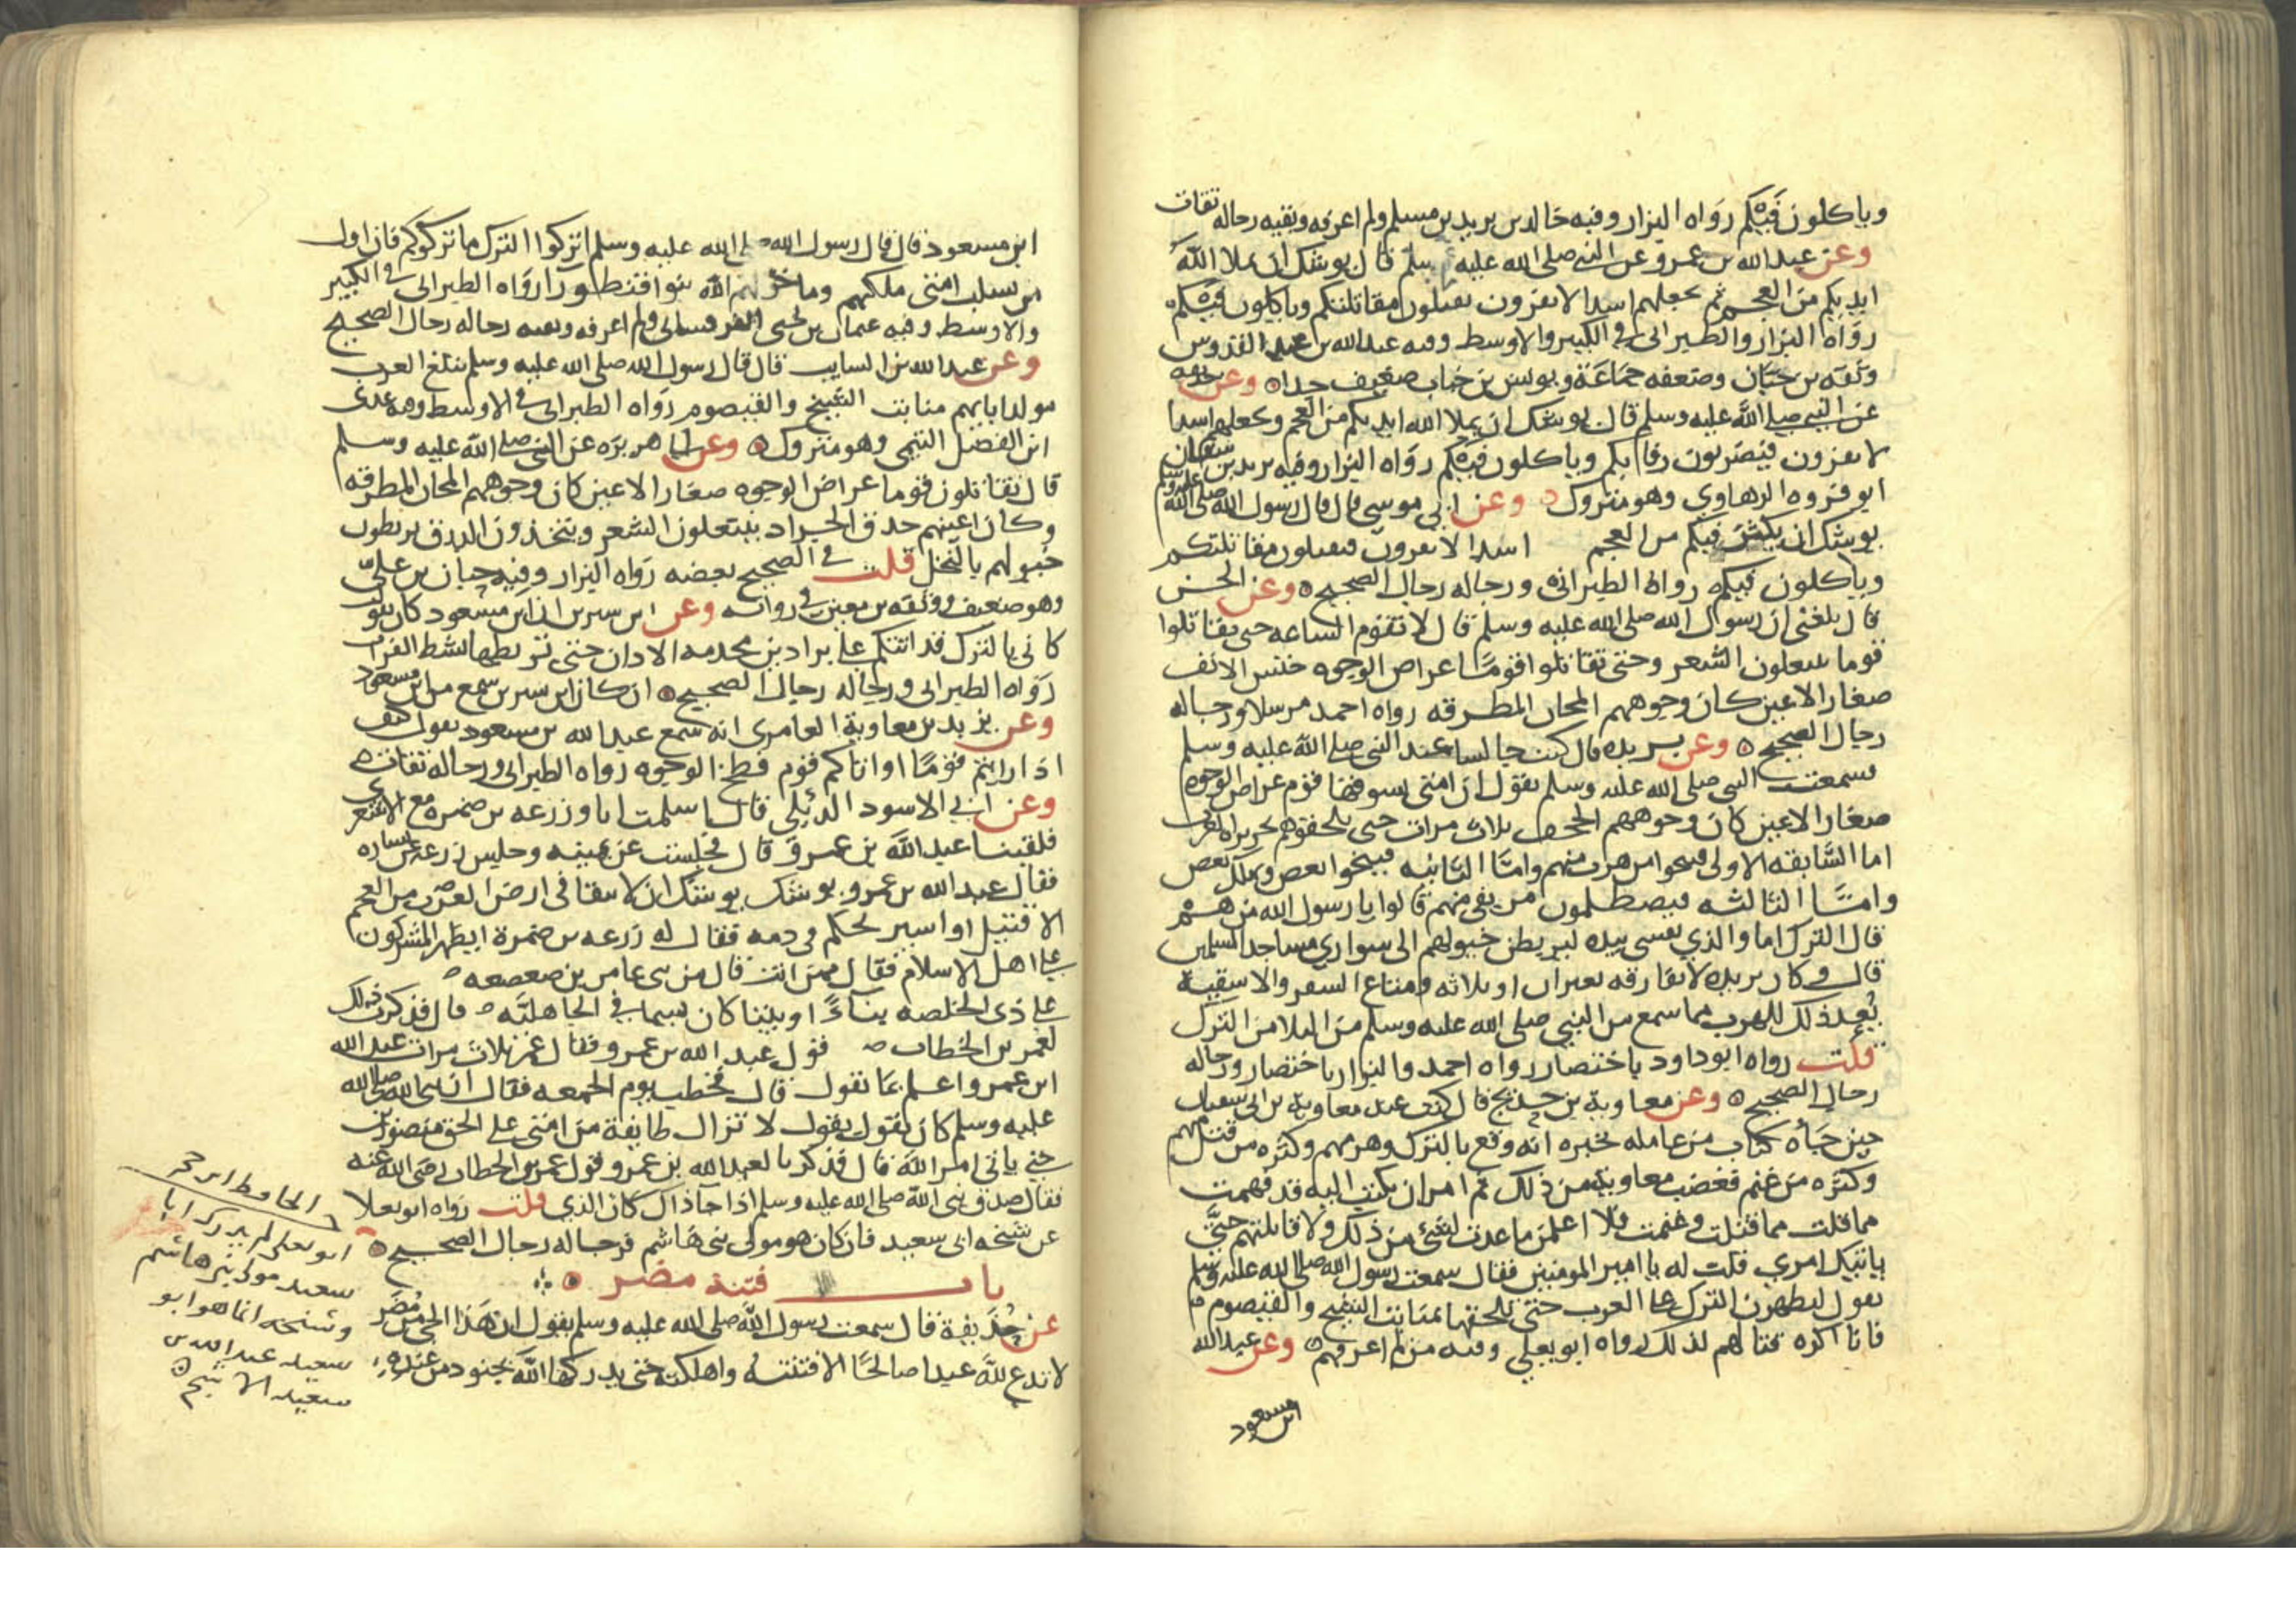 وياكلون فيكم رواه البزار وفيه خالد بن يزيد بن مسلم ولم اعرفه وبقيه رجاله ثقات
وعن عبد الله بن عمرو عن النبي صلى الله عليه وسلم قال يوشك ان يملا الله
ايديكم من العجم ثم يجعلهم اسدا لا يفرون يقتلون مقاتلتكم وياكلون فيكم
رواه البزار والطبراني في الكبير والاوسط وفيه عبد الله بن عبد القدوس
وثقه بن حبان وضعفه جماعة ويونس بن خباب ضعيف جدا وعن حذيفه
عن النبي صلى الله عليه وسلم قال يوشك ان يملا الله ايديكم من العجم ويجعلهم اسدا
لا يفرون فيضربون رقابكم وياكلون فيكم رواه البزار وفيه يزيد بن سنان
ابو فروه الرهاوي وهو متروك وعن ابي موسى قال قال رسول الله صلى الله عليه وسلم
يوشك ان يكثر فيكم من العجم اسدا لا يفرون فيقتلون مقاتلتكم
وياكلون فيكم رواه الطبراني ورجاله رجال الصحيح وعن الحسن
قال بلغني ان رسول الله صلى الله عليه وسلم قال لا تقوم الساعه حتى يقاتلوا
قوما ينتعلون الشعر وحتى تقاتلوا قوما عراض الوجوه خنس الانف
صغار الاعين كان وجوههم المجان المطرقه رواه احمد مرسلا ورجاله
رجال الصحيح وعن بريده قال كنت جالسا عند النبي صلى الله عليه وسلم
فسمعت النبي صلى الله عليه وسلم يقول ان امتي يسوقها قوم عراض الوجوه
صغار الاعين كان وجوههم الحجف ثلاث مرات حتى يلحقوهم بجزيرة العرب
اما السابقه الاولى فينجوا من هرب منهم واما الثانيه فينجوا بعض ويهلك بعض
واما الثالثه فيصطلمون من بقي منهم قالوا يا رسول الله من هم
قال الترك اما والذي نفسي بيده ليربطن خيولهم الى سواري مساجد المسلمين
قال وكان بريده لا يفارقه بعيران او ثلاثه ومتاع السفر والاسقية
بعد ذلك للهرب مما سمع من النبي صلى الله عليه وسلم من البلا من الترك
قلت رواه ابو داود باختصار رواه احمد والبزار باختصار ورجاله
رجال الصحيح وعن معاوية بن حديج قال كنت عند معاوية بن ابي سفيان
حين جاه كتاب من عامله يخبره انه وقع بالترك وهزمهم وكثره من قتل منهم
وكثره من غنم فغضب معاوية من ذلك ثم امر ان يكتب اليه قد فهمت
مما قلت مما قتلت وغنمت فلا اعلمن ما عدت لشيء من ذلك ولا قاتلتهم حتى
ياتيك امري قلت له يا امير المومنين فقال سمعت رسول الله صلى الله عليه وسلم
يقول ليظهرن الترك على العرب حتى يلحقها بمنابت الشيح والقيصوم
فانا اكره قتالهم لذلك رواه ابو يعلي وفيه من لم اعرفهم وعن عبد الله
ابن مسعود
ابن مسعود قال قال رسول الله صلى الله عليه وسلم اتركوا الترك ما تركوكم فان اول
من يسلب امتي ملكهم وما خولهم الله بنوا قنطورا رواه الطبراني في الكبير
والاوسط وفيه عثمان بن يحيى القرقساني ولم اعرفه وبقيه رجاله رجال الصحيح
وعن عبد الله بن السايب قال قال رسول الله صلى الله عليه وسلم ستلغ العرب
مولد ابايهم منابت الشيح والقيصوم رواه الطبراني في الاوسط وفيه عدي
ابن الفضل التيمي وهو متروك وعن ابي هريره عن النبي صلى الله عليه وسلم
قال يقاتلون قوما عراض الوجوه صغار الاعين كان وجوههم المجان المطرقه
وكان اعينهم حدق الجراد ينتعلون الشعر ويتخذون الدرق يربطون
خيولهم بالنخل قلت في الصحيح بعضه رواه البزار وفيه حبان بن علي
وهو ضعيف ووثقه بن معين في رواية وعن ابن سيرين ان ابن مسعود كان يقول
كاني بالترك قد اتتكم على براذين مجذمه الاذان حتى تربطها بشط الفرات
رواه الطبراني ورجاله رجال الصحيح ان كان ابن سيرين سمع من ابن مسعود
وعن يزيد بن معاوية العامري انه سمع عبد الله بن مسعود يقول كيف
اذا رايتم قوما او اتاكم قوم فطح الوجوه رواه الطبراني ورجاله ثقات
وعن ابي الاسود الدئلي قال اسلمت انا وزرعه بن ضمره مع الاشعري
فلقينا عبد الله بن عمرو قال فجلست عن يمينه وجلس زرعه عن يساره
فقال عبد الله بن عمرو يوشك يوشك ان لا يبقا في ارض العرب من العجم
الا قتيل او اسير يحكم في دمه فقال له زرعه بن ضمرة ايظهر المشركون
على اهل الاسلام فقال ممن انت قال من بني عامر بن صعصعه
على ذي الخلصه بناءً او بيتا كان يسما في الجاهلية قال فذكرت ذلك
لعمر بن الخطاب قول عبد الله بن عمرو فقال عمر ثلاث مرات عبد الله
ابن عمرو اعلم بما يقول قال فخطب يوم الجمعه فقال ان نبي الله صلى الله
عليه وسلم كان يقول يقول لا تزال طايفة من امتي على الحق منصورين
حتى ياتي امر الله قال فذكرنا لعبد الله بن عمرو قول عمر بن الخطاب رضي الله عنه
فقال صدق نبي الله صلى الله عليه وسلم اذا جا ذاك كان الذي قلت رواه ابو يعلا
عن شيخه ابي سعيد فان كان هو مولى بني هاشم فرجاله رجال الصحيح
باب فتنة مضر
عن حذيفة قال سمعت رسول الله صلى الله عليه وسلم يقول ان هذا الحي من مضر
لا تدع لله عبدا صالحا الا فتنته واهلكته حتى يدركها الله بجنود من عنده
الحافظ ابن حجر
ابو يعلى لم يدرك ابا
سعيد مولى بني هاشم
وشيخه انما هو ابو
سعيد عبد الله بن
سعيد الاشج